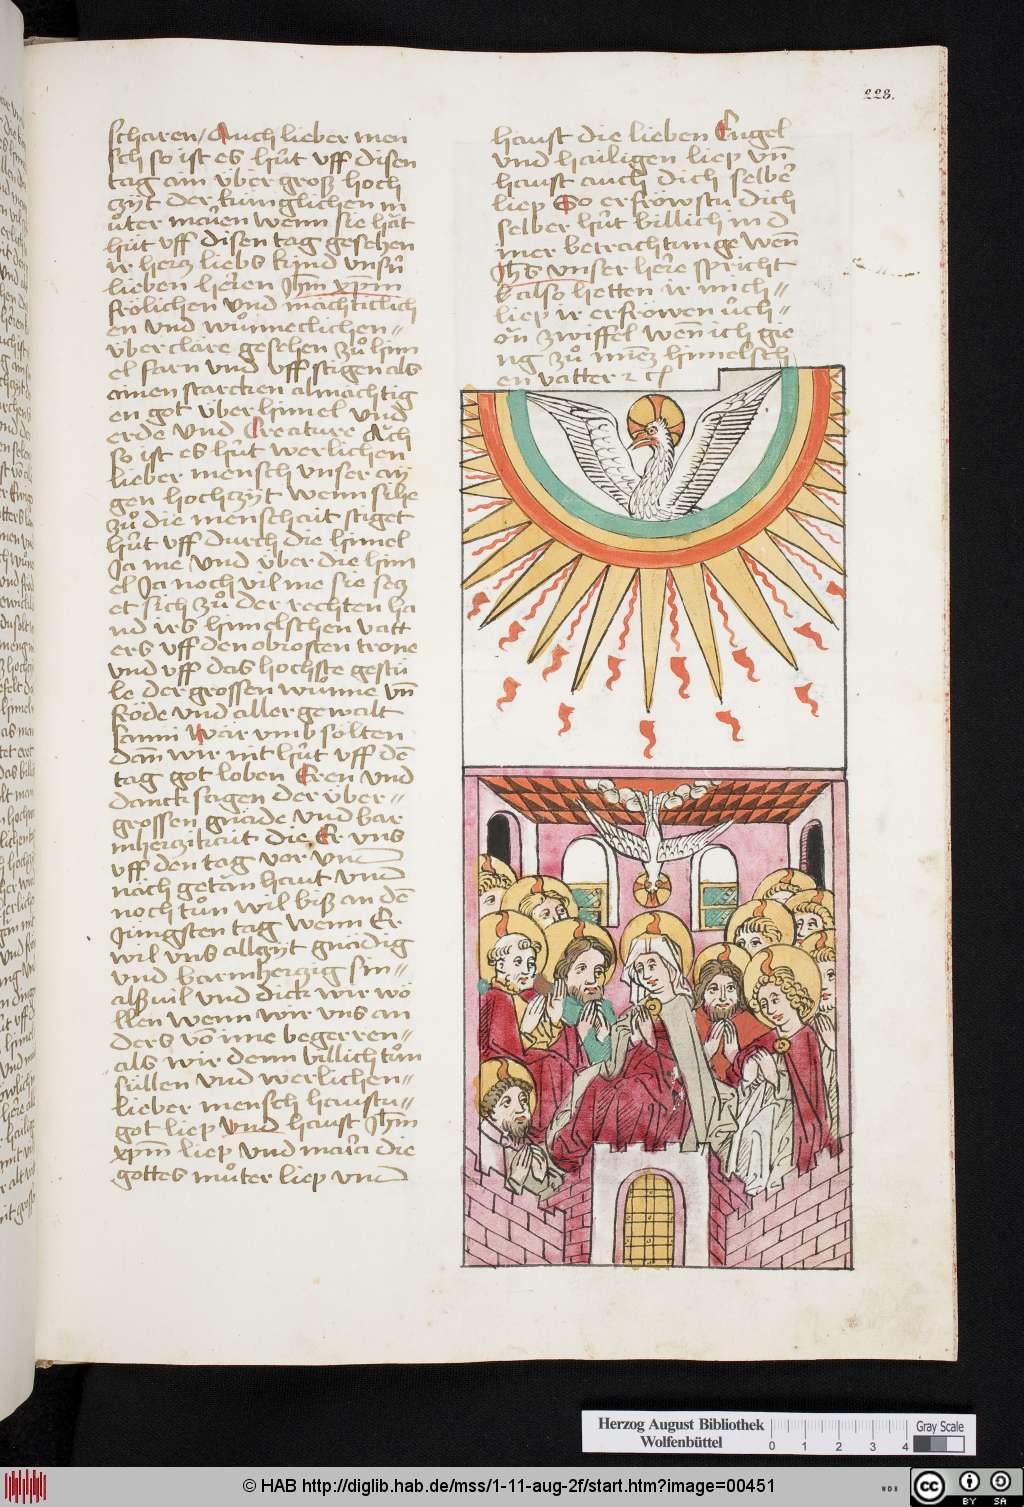 228.
scharen / Auch lieber men
sch so ist es hút vff disen
tag ain über groß hoch
zyt der küniglichen m
ůter marien wenn sie hat
hút vff disen tag gesehen
ir hercz liebs kind vnsn̄
lieben heren Jhm̄ xp̄m
frölichen vnd mächticlich
en vnd wůnneclichen
über cläre gesehen zů him
el farn vnd vff stigen als
ainen starcken almächtig
en got über himel vnd
erde vnd Creature Auch
so ist es hút werlichen
lieber mensch vnser aÿ
gen hochzyt wenn sihe
zů die menschait stiget
hút vff durch die himel
Ja me vnd über die him
el Ja noch vil me sie secz
et sich zů der rechten ha
nd irs himelschen vatt
ers vff den obrosten trone
vnd vff das höchste gestü
le der grossen wůnne vn̄
fröde vnd aller gewalt
sami War vmb sölten
dan̄ wir nit hút vff dē
tag got loben Eren vnd
danck sagen der über
grossen gnäde vnd bar
mherczikait die Er vns
vff den tag vor vnd
näch getän haut vnd
noch tůn wil biß an dē
Jüngsten tag wenn Er
wil vns allzyt gnädig
vnd barmherczig sin
als vil vnd dick wir wö
llen wenn wir vns an
ders vō ime begerren
als wir denn billich tůn
süllen vnd werlichen
lieber mensch haustu
got liep vnd haust Jhm̄
xp̄m liep vnd maria die
gottes můter liep vnd
haust die lieben Engel
vnd hailigen liep vn̄
haust auch dich selber
liep So erfröwstu dich
selber hút billich in d
iner betrachtunge wen̄
Jhs vnser here spricht
also hetten ir mich
liep ir erfröwen úch
on zwiffel wen̄ ich gie
ng zů minez himelsch
en vatter
Herzog August Bibliothek
Wolfenbüttel
0 1 2 3 4
Gray Scale
© HAB http://diglib.hab.de/mss/1-11-aug-2f/start.htm?image=00451
WDB
cc BY SA